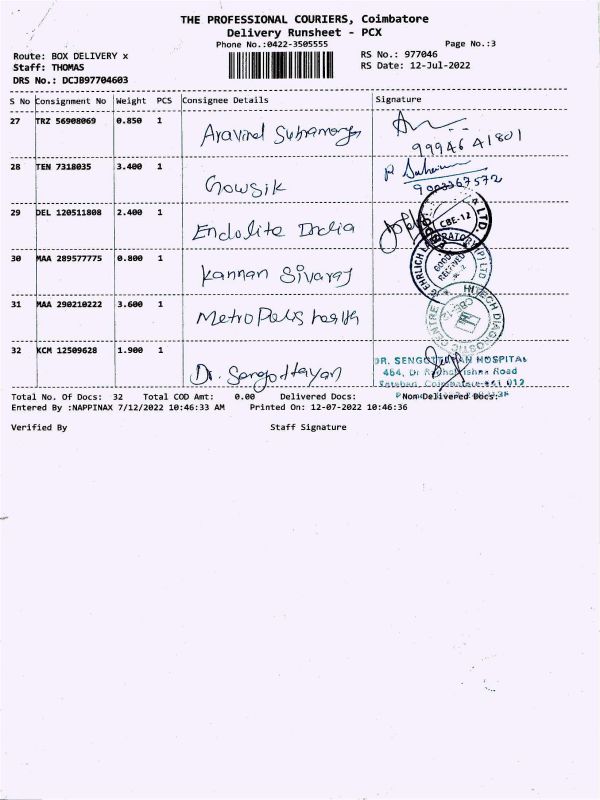 THE PROFESSIONAL COURIERS, Coimbatore
Delivery Runsheet - PCX
Phone No.:0422-3505555
Page No.:3
Route: BOX DELIVERY x
RS No.: 977046
Staff: THOMAS
RS Date: 12-Jul-2022
DRS No.: DCJB97704603
S No Consignment No Weight PCS Consignee Details Signature
27 TRZ 56908069 0.850 1 Aravind Subramony
99946 41801
28 TEN 7318035 3.400 1 Gowsik
9003367572
29 DEL 120511808 2.400 1 Endolite India
CBE-12
LTD.
30 MAA 289577775 0.800 1 Kannan Sivaraj
EHRLICH LABORATORY (P) LTD
GOODS
RECEIVED
31 MAA 290210222 3.600 1 Metropolis health
HITECH DIAGNOSTIC CENTRE
CBE-12
32 KCM 12509628 1.900 1 Dr. Sengottayan
DR. SENGOTTAIYAN HOSPITAL
464, Dr Radhakrishna Road
Total No. Of Docs: 32 Total COD Amt: 0.00 Delivered Docs: Non Delivered Docs:
Entered By :NAPPINAX 7/12/2022 10:46:33 AM Printed On: 12-07-2022 10:46:36
Verified By Staff Signature